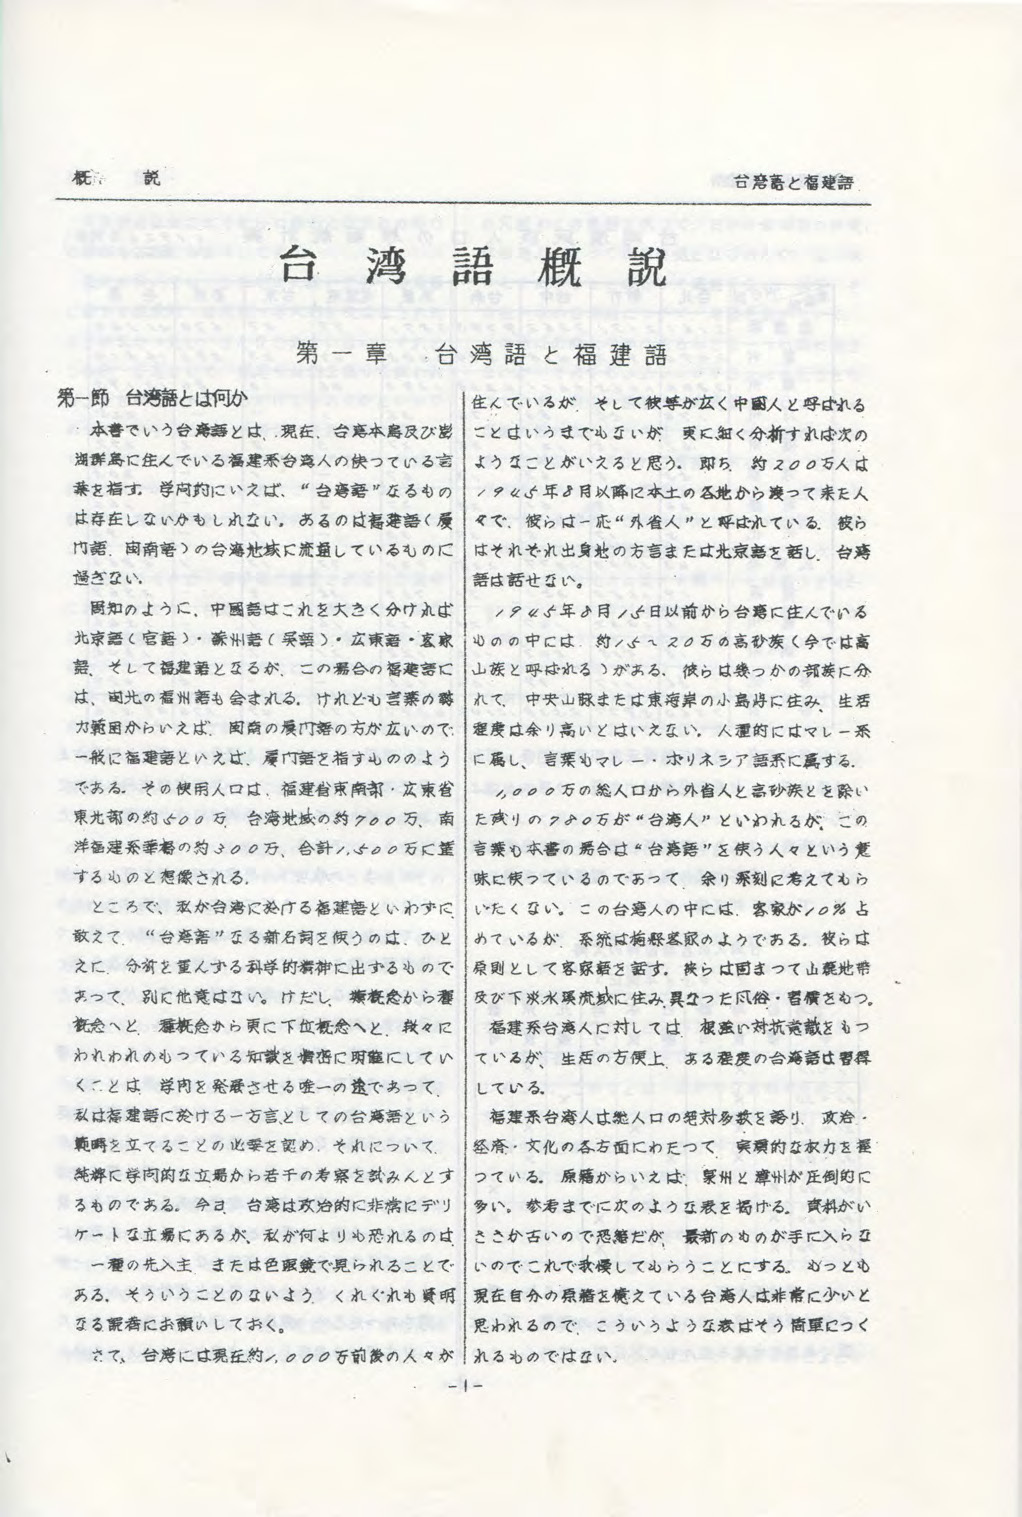 概　説
台湾語と福建語
台湾語概説
第一章　台湾語と福建語
第一節　台湾語とは何か
本書でいう台湾語とは、現在、台湾本島及び澎
湖群島に住んでいる福建系台湾人の使つている言
葉を指す。学问的にいえば、“台湾語”なるもの
は存在しないかもしれない。あるのは福建語(厦
门語、闽南語)の台湾地域に流通しているものに
過ぎない。
周知のように、中國語はこれを大きく分ければ
北京語(官語)・蘇州語(吳語)・広東語・客家
語、そして福建語となるが、この場合の福建語に
は、闽北の福州語も含まれる。けれども言葉の勢
力範囲からいえば、闽南の厦门語の方が広いので
一般に福建語といえば、厦门語を指すもののよう
である。その使用人口は、福建省東南部・広東省
東北部の約500万、台湾地域の約700万、南
洋福建系華僑の約300万、合計1,500万に達
するものと想像される。
ところで、私が台湾に於ける福建語といわずに
敢えて、“台湾語”なる新名詞を使うのは、ひと
えに、分析を重んずる科学的精神に出するもので
あって、別に他意はない。けだし、類概念から種
概念へと、種概念から更に下位概念へと、段々に
われわれのもつている知識を精密に明確にしてい
くことは、学问を発展させる唯一の途であって、
私は福建語に於ける一方言としての台湾語という
範疇を立てることの必要を認め、それについて、
純粋に学问的な立場から若干の考察を試みんとす
るものである。今日、台湾は政治的に非常にデリ
ケートな立場にあるが、私が何よりも恐れるのは
一種の先入主、または色眼鏡で見られることで
ある。そういうことのないよう、くれぐれも賢明
なる読者にお願いしておく。
さて、台湾には現在約1,000万前後の人々が
住んでいるが、そして彼等が広く中國人と呼ばれる
ことはいうまでもないが、更に細く分析すれば次の
ようなことがいえると思う。即ち、約200万人は
1945年8月以降に本土の各地から渡って来た人
々で、彼らは一応“外省人”と呼ばれている。彼ら
はそれぞれ出身地の方言または北京語を話し、台湾
語は話せない。
1945年8月15日以前から台湾に住んでいる
ものの中には、約15〜20万の高砂族(今では高
山族と呼ばれる)がある。彼らは幾つかの部族に分
れて、中央山脉または東海岸の小島等に住み、生活
程度は余り高いとはいえない。人種的にはマレー系
に属し、言葉もマレー・ポリネシア語系に属する。
1,000万の総人口から外省人と高砂族とを除い
た残りの780万が“台湾人”といわれるが、この
言葉も本書の場合は“台湾語”を使う人々という意
味に使つているのであって、余り深刻に考えてもら
いたくない。この台湾人の中には、客家が10%占
めているが、系統は梅県客家のようである。彼らは
原則として客家語を話す。彼らは固まつて山麓地帯
及び下淡水溪流域に住み、異なった風俗・習慣をもつ。
福建系台湾人に対しては、根強い対抗意識をもつ
ているが、生活の方便上、ある程度の台湾語は習得
している。
福建系台湾人は総人口の絶対多数を誇り、政治・
経済・文化の各方面にわたつて、実質的な水力を握
つている。原籍からいえば、泉州と漳州が圧倒的に
多い。参考までに次のような表を掲げる。資料がい
ささか古いので恐縮だが、最新のものが手に入らな
いのでこれで我慢してもらうことにする。もっとも
現在自分の原籍を憶えている台湾人は非常に少いと
思われるので、こういうような表はそう簡単につく
れるものではない。
-1-